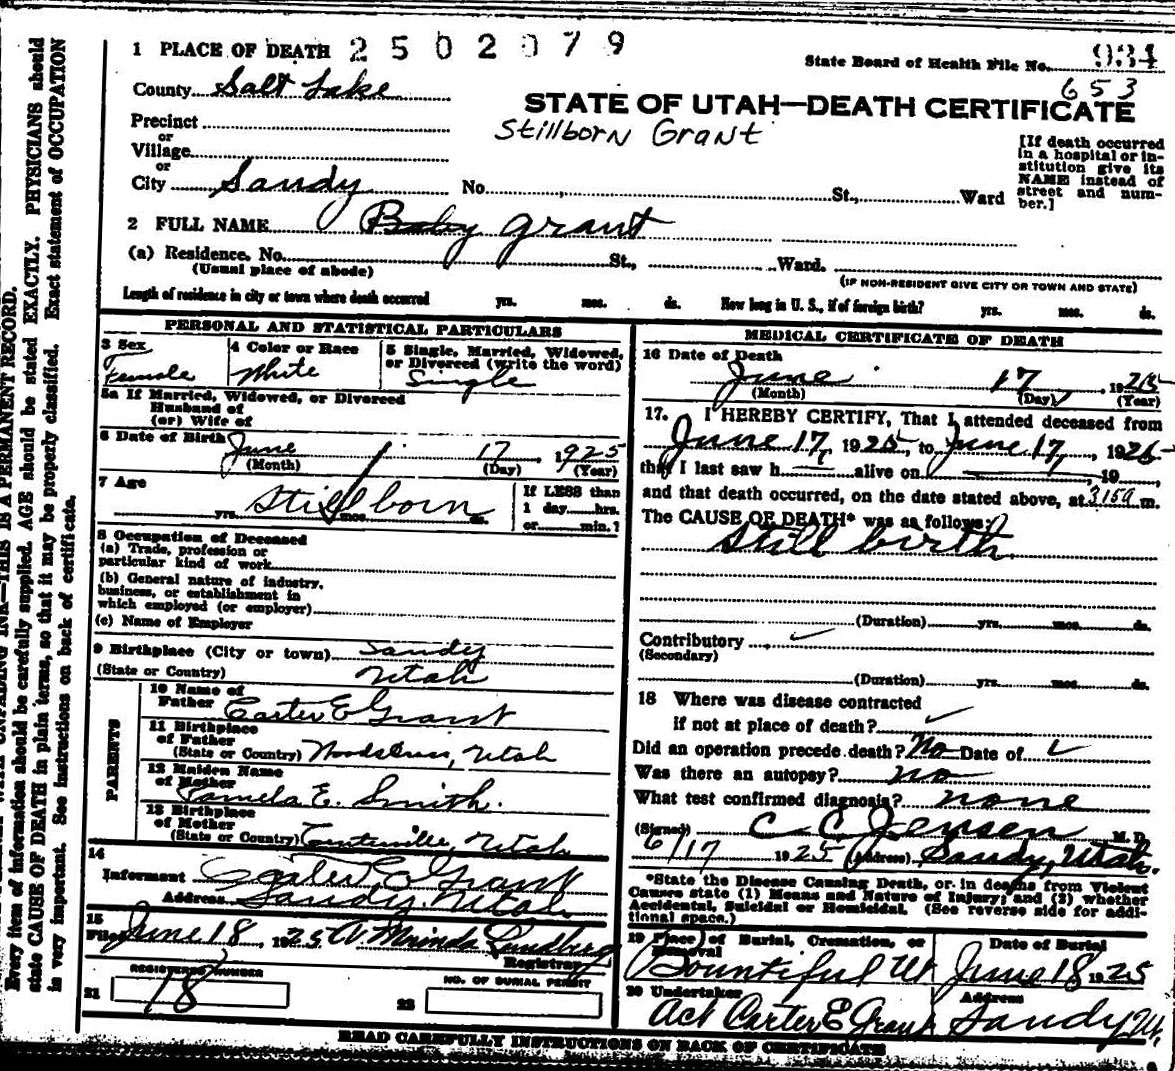 1 PLACE OF DEATH 2502079
State Board of Health File No. 934
653
County Salt Lake
STATE OF UTAH—DEATH CERTIFICATE
Stillborn Grant
Precinct
or
Village
or
City Sandy No. St., Ward
[If death occurred
in a hospital or in-
stitution give its
NAME instead of
street and num-
ber.]
2 FULL NAME Baby Grant
(a) Residence. No. St., Ward.
(Usual place of abode)
(IF NON-RESIDENT GIVE CITY OR TOWN AND STATE)
Length of residence in city or town where death occurred yrs. mos. ds. How long in U. S., if of foreign birth? yrs. mos. ds.
PERSONAL AND STATISTICAL PARTICULARS
3 Sex
Female
4 Color or Race
White
5 Single, Married, Widowed,
or Divorced (write the word)
Single
5a If Married, Widowed, or Divorced
Husband of
(or) Wife of
6 Date of Birth June 17 1925
(Month) (Day) (Year)
7 Age
Stillborn
yrs. mos. ds.
If LESS than
1 day hrs.
or min.?
8 Occupation of Deceased
(a) Trade, profession or
particular kind of work
(b) General nature of industry,
business, or establishment in
which employed (or employer)
(c) Name of Employer
9 Birthplace (City or town) Sandy
(State or Country) Utah
PARENTS
10 Name of
Father Carter E Grant
11 Birthplace
of Father
(State or Country) Woodscross, Utah
12 Maiden Name
of Mother
Pamela E. Smith.
13 Birthplace
of Mother
(State or Country) Centerville, Utah
14
Informant Carter E Grant
Address Sandy, Utah
15
Filed June 18, 1925 A Mrinda Lundberg
Registrar
REGISTERED NUMBER
21 18
NO. OF BURIAL PERMIT
22
MEDICAL CERTIFICATE OF DEATH
16 Date of Death
June 17, 1925
(Month) (Day) (Year)
17. I HEREBY CERTIFY, That I attended deceased from
June 17, 1925, to June 17, 1925
that I last saw h alive on , 19
and that death occurred, on the date stated above, at 3:15a m.
The CAUSE OF DEATH* was as follows:
Still birth
(Duration) yrs. mos. ds.
Contributory
(Secondary)
(Duration) yrs. mos. ds.
18 Where was disease contracted
if not at place of death?
Did an operation precede death? No Date of
Was there an autopsy? no
What test confirmed diagnosis? none
(Signed) C. C. Jensen M. D.
6/17 1925 (Address) Sandy, Utah.
*State the Disease Causing Death, or in deaths from Violent
Causes state (1) Means and Nature of Injury; and (2) whether
Accidental, Suicidal or Homicidal. (See reverse side for addi-
tional space.)
19 Place of Burial, Cremation, or
Removal
Bountiful Ut
Date of Burial
June 18 1925
20 Undertaker
Act Carter E Grant
Address
Sandy, Ut,
READ CAREFULLY INSTRUCTIONS ON BACK OF CERTIFICATE
UNFADING INK—THIS IS A PERMANENT RECORD.
Every item of information should be carefully supplied. AGE should be stated EXACTLY. PHYSICIANS should
state CAUSE OF DEATH in plain terms, so that it may be properly classified. Exact statement of OCCUPATION
is very important. See instructions on back of certificate.